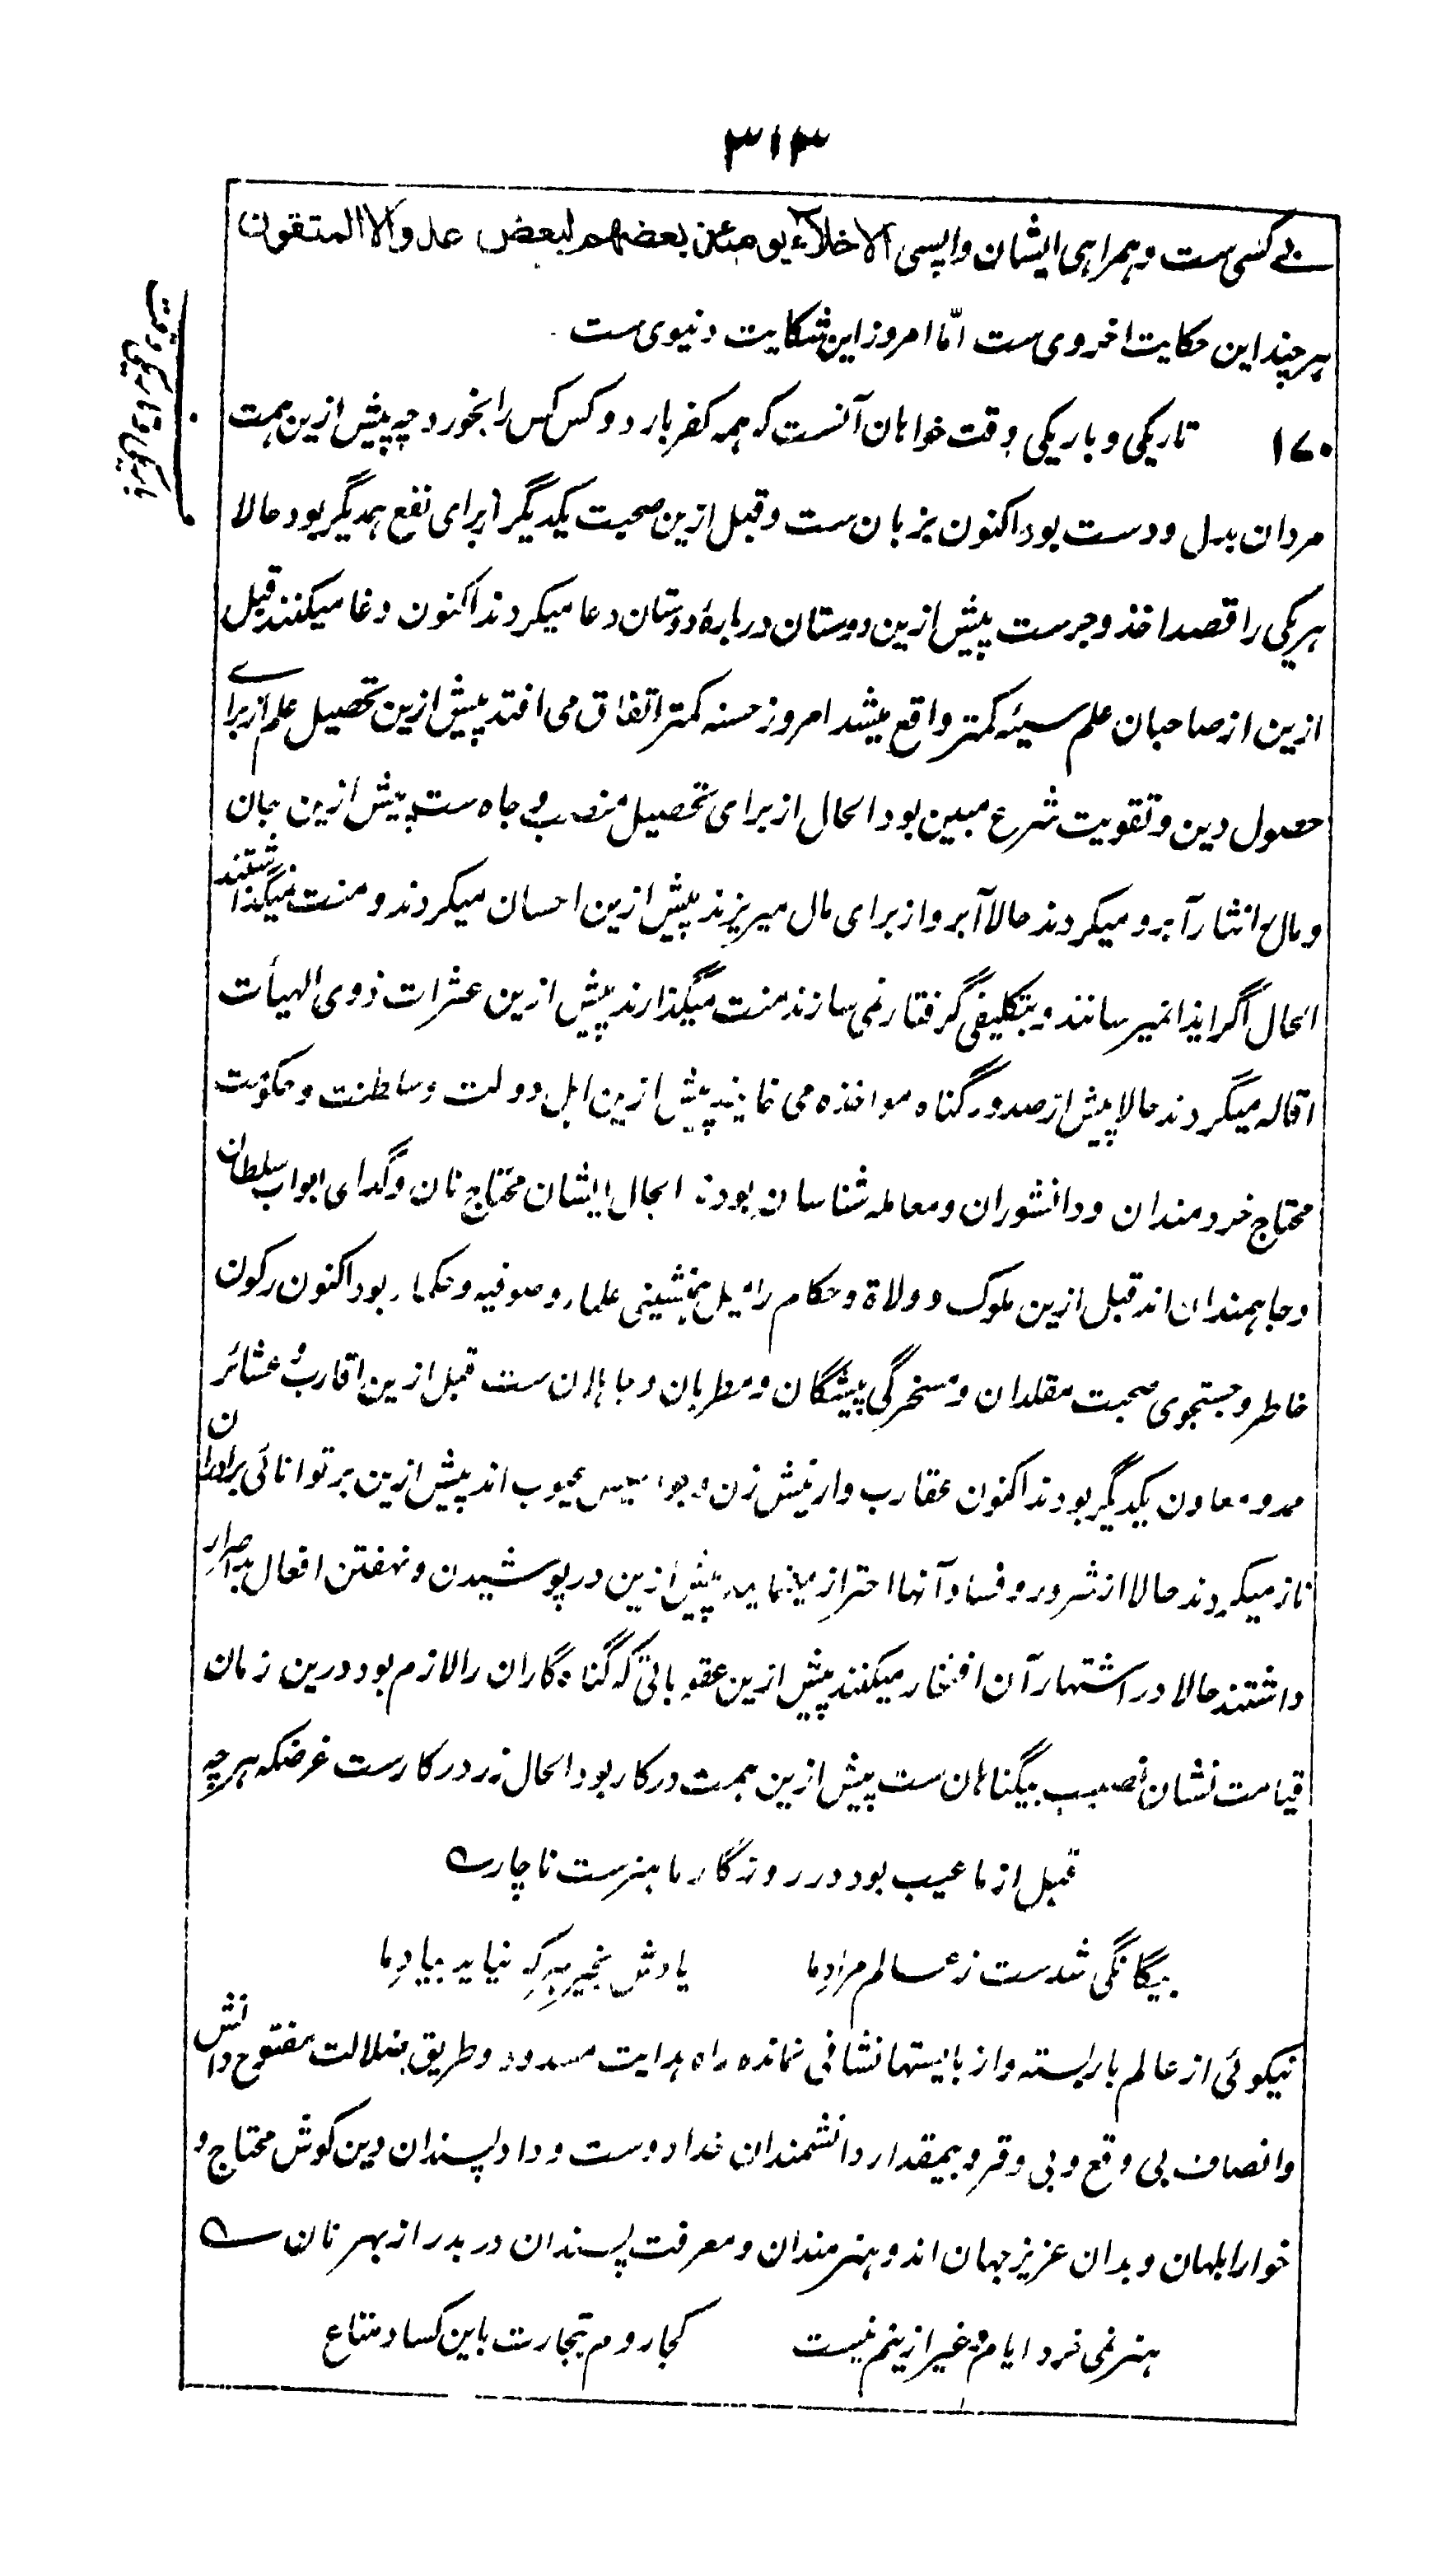 ۳۱۳
بے کسی ست و همراهی ایشان واپسی الاخلاء یومئذ بعضهم لبعض عدو الا المتقون
هر چند این حکایت اخروی ست امّا امروز این شکایت دنیوی ست
۱۷۰ تاریکی و باریکی وقت خواهان آنست که همه کفر بارد و کس کس را نخورد چه پیش ازین همت
مردان بدل و دست بود اکنون بزبان ست و قبل ازین صحبت یکدیگر برای نفع همدیگر بود حالا
هر یکی را قصد اخذ و جرست پیش ازین دوستان در بارهٔ دوستان دعا میکردند اکنون دغا میکنند قبل
ازین از صاحبان علم سیئه کمتر واقع میشد امروز حسنه کمتر اتفاق می افتد پیش ازین تحصیل علم از برای
حصول دین و تقویت شرع مبین بود الحال از برای تحصیل منصب و جاه ست پیش ازین بجان
و مال انثار آبرو میکردند حالا آبرو از برای مال میریزند پیش ازین احسان میکردند و منت نمیگذاشتند
الحال اگر ایذا نمیرسانند و بتکلیفی گرفتار نمی سازند منت میگذارند پیش ازین عثرات ذوی الهیأت
اقاله میکردند حالا پیش از صدور گناه مواخذه می نمایند پیش ازین اهل دولت و سلطنت و حکومت
محتاج خردمندان و دانشوران و معامله شناسان بودند الحال ایشان محتاج نان و گدای ابواب سلطان
و جاهمندان اند قبل ازین ملوک و ولاة و حکام را میل همنشینی علماء و صوفیه و حکماء بود اکنون رکون
خاطر و جستجوی صحبت مقلدان و مسخرگی پیشگان و مطربان و جاهلان ست قبل ازین اقارب و عشائر
ممد و معاون یکدیگر بودند اکنون عقارب وار نیش زن و جواسیس عیوب اند پیش ازین بر توانائی برادران
ناز میکردند حالا از شرور و فساد آنها احتراز مینمایند پیش ازین در پوشیدن و نهفتن افعال بد اصرار
داشتند حالا در اشتهار آن افتخار میکنند پیش ازین عقوباتی که گناهگاران را لازم بود درین زمان
قیامت نشان نصیب بیگناهان ست پیش ازین همت درکار بود الحال زر درکارست غرضکه هر چه
قبل از ما عیب بود در روزگار ما هنرست ناچار ے
بیگانگی شدست ز عالم مراد ما یادش بخیر هر که نیاید بیاد ما
نیکوئی از عالم بار بسته و از بایستها نشانی نمانده راه هدایت مسدود و طریق ضلالت مفتوح دانش
و انصاف بی وقع و بی وقر و بیمقدار دانشمندان خدا دوست و داد پسندان دین کوش محتاج و
خوار ابلهان و بدان عزیز جهان اند و هنرمندان و معرفت پسندان در بدر از بهر نان ے
هنر نمی خرد ایام و غیر ازینم نیست کجا روم بتجارت باین کساد متاع